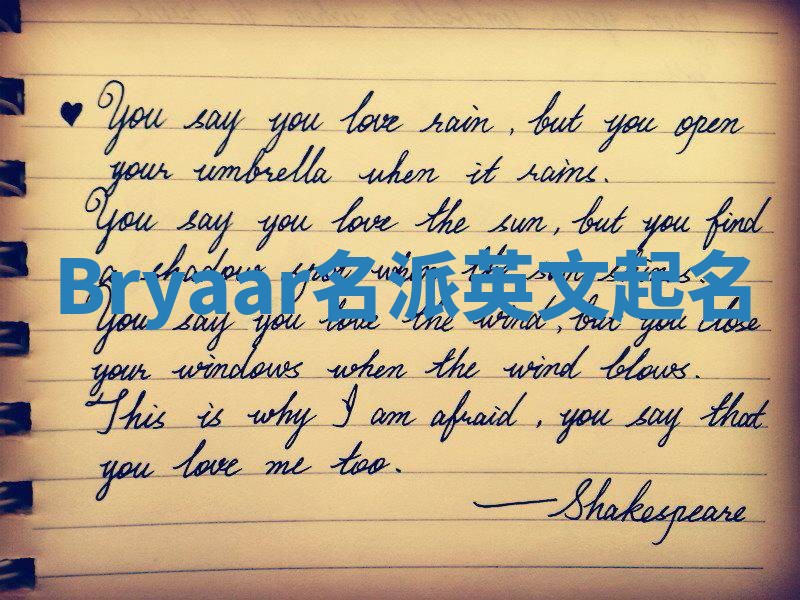 ♥ You say you love rain, but you open
your umbrella when it rains.
You say you love the sun, but you find
a shadow spot when the sun shines.
Bryaar名派英文起名
You say you love the wind, but you close
your windows when the wind blows.
This is why I am afraid, you say that
you love me too.
—Shakespeare